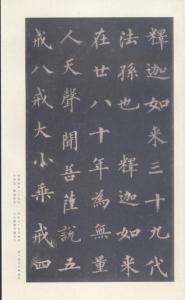 釋迦如来三十九代
法孫也　釋迦如来
在廿八十年為無量
人天聲聞菩薩說五
戒八戒大小乘戒四